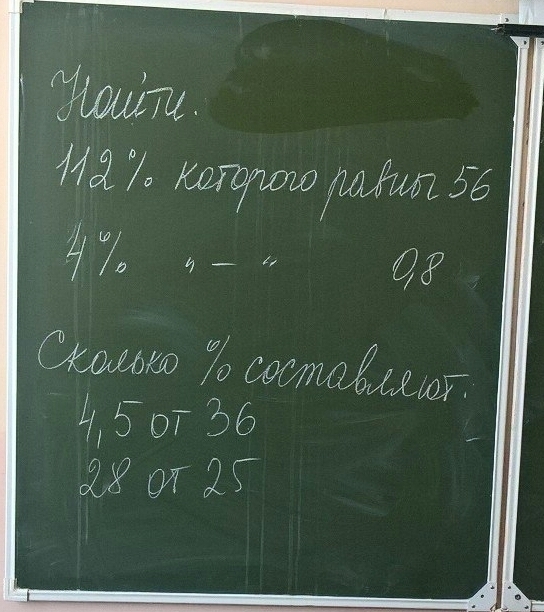 Найти.
112% которого равны 56
4% „ — “ 0,8
Сколько % составляют:
4,5 от 36
28 от 25